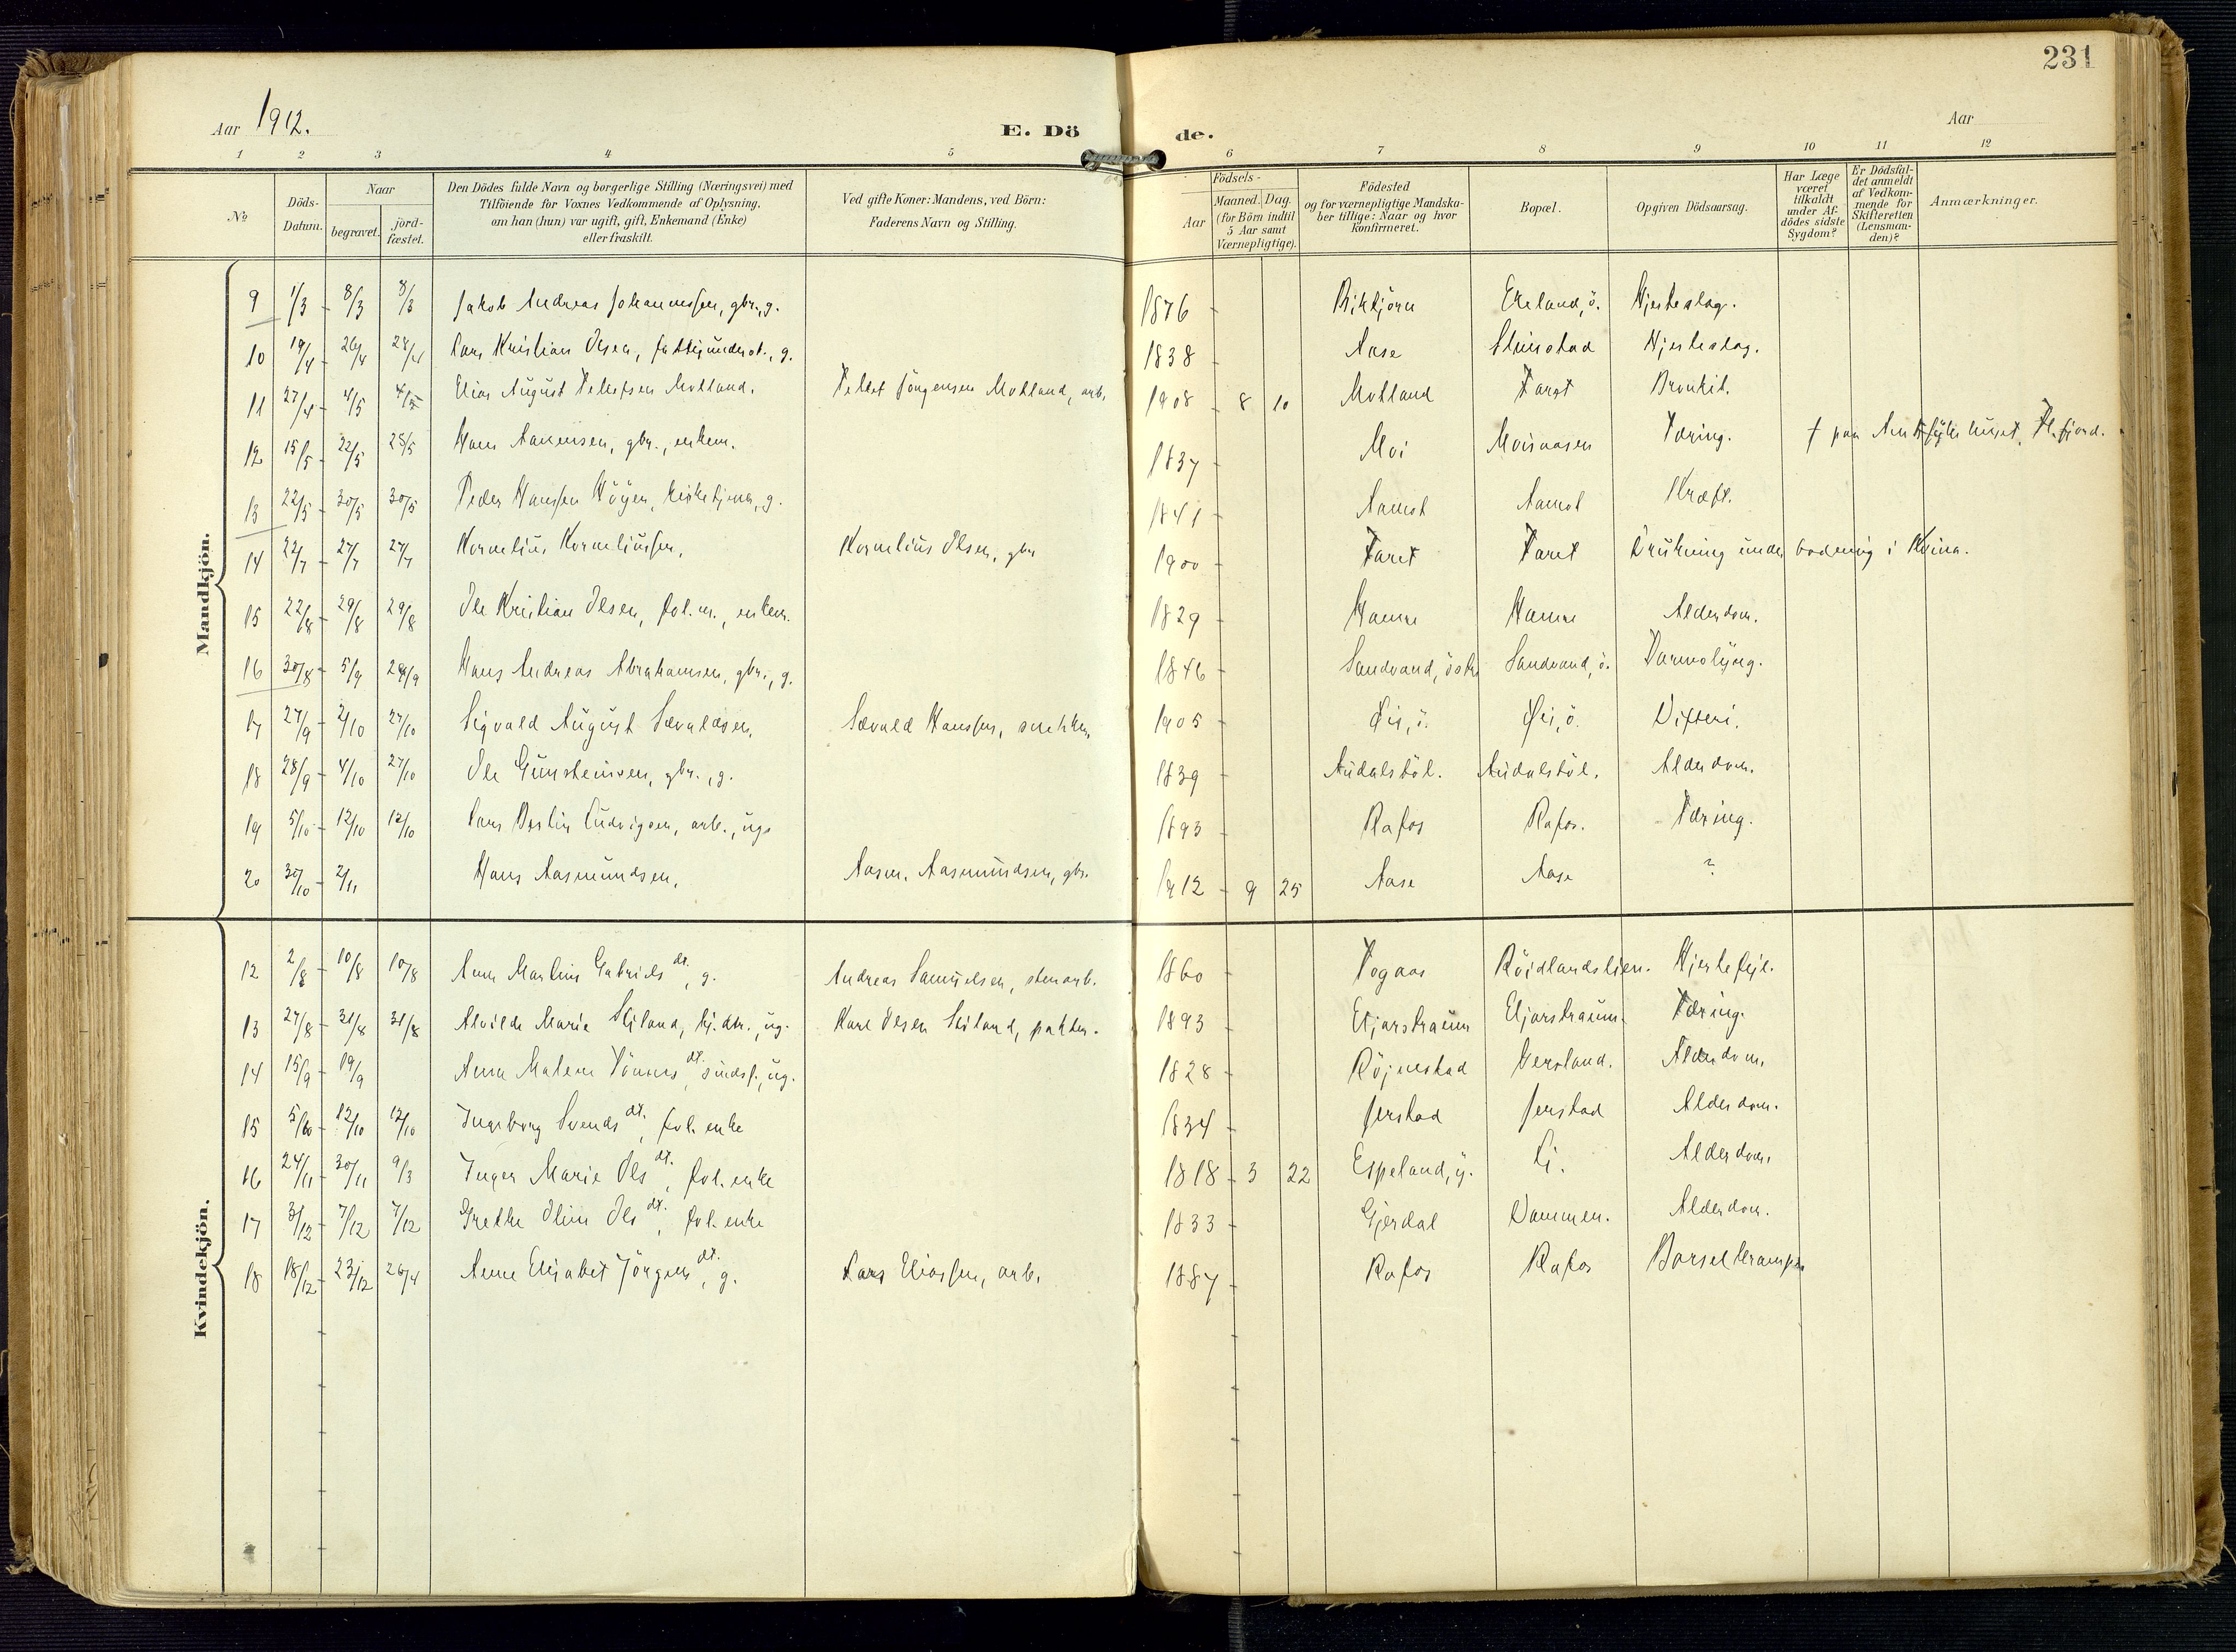 231
Aar 1912.
E. Döde.
Aar
1 2 3 4 5 6 7 8 9 10 11 12
No
Döds-Datum.
Naar
begravet.
jord-fæstet.
Den Dödes fulde Navn og borgerlige Stilling (Næringsvei) med
Tilföiende for Voxnes Vedkommende af Oplysning,
om han (hun) var ugift, gift, Enkemand (Enke)
eller fraskilt.
Ved gifte Koner: Mandens, ved Börn:
Faderens Navn og Stilling.
Födsels-
Aar
Maaned. Dag.
(for Börn indtil
5 Aar samt
Værnepligtige).
Födested
og for værnepligtige Mandska-
ber tillige: Naar og hvor
konfirmeret.
Bopæl.
Opgiven Dödsaarsag.
Har Læge
været
tilkaldt
under Af-
dödes sidste
Sygdom?
Er Dödsfal-
det anmeldt
af Vedkom-
mende for
Skifteretten
(Lensman-
den)?
Anmærkninger.
Mandkjön.
9 1/3 8/3 8/3 Jakob Andreas Johannessen, gbr., g. 1876 Birkjörn Eieland, ö. Hjerteslag.
10 19/4 26/4 28/4 Lars Kristian Olsen, fattigunderst., g. 1838 Aase Stimstad Hjerteslag.
11 27/4 4/5 4/5 Elias August Tellefsen Motland. Tellef Jörgensen Motland, arb. 1908 8 10 Motland Faret Bronkit.
12 15/5 22/5 25/5 Hans Aanensen, gbr., enkem. 1837 Moi Moisaasen Tæring. † paa Amtssykehuset, Fl.fjord.
13 22/5 30/5 30/5 Peder Hanssen Höyer, kirketjener, g. 1841 Aamot Aamot Kræft.
14 22/7 27/7 27/7 Kornelius Korneliussen, Kornelius Olsen, gbr 1900 Faret Faret Drukning under badning i Kvina.
15 22/8 29/8 29/8 Ole Kristian Olsen, fol.m., enkem. 1829 Hamre Hamre Alderdom.
16 30/8 5/9 29/9 Hans Andreas Abrahamsen, gbr., g. 1846 Sandvand, östre Sandvand, ö. Tarmslyng.
17 27/9 2/10 27/10 Sigvald August Sævaldsen, Sævald Hanssen, snekker, 1905 Öie, ö. Öie, ö. Difteri.
18 28/9 4/10 27/10 Ole Gunsteinsen, gbr., g. 1839 Audalsböl. Audalsböl. Alderdom.
19 5/10 12/10 12/10 Lars Berlin Ludvigsen, arb., ug. 1893 Rafos Rafos. Tæring.
20 30/10 2/11 Hans Aasmundsen, Aasm. Aasmundsen, gbr. 1912 9 25 Aase Aase ?
Kvindekjön.
12 2/8 10/8 10/8 Anne Martine Gabrielsdt., g. Andreas Samuelsen, stenarb. 1860 Fogaas Röidlandslien. Hjertefeil.
13 27/8 31/8 31/8 Alvilde Marie Stiland, tj.dtr., ug. Karl Olsen Stiland, pakter. 1893 Eljarstraum Eljarstraum. Tæring.
14 15/9 19/9 Anna Malene Tönnesdt., sindsf., ug. 1828 Röjnestad Versland. Alderdom.
15 5/10 12/10 12/10 Ingeborg Svendsdt., fol. enke 1834 Jerstad Jerstad Alderdom.
16 24/11 30/11 9/3 Inger Marie Olsdt., fol. enke 1818 3 22 Espeland, y. Li. Alderdom.
17 3/12 7/12 7/12 Grethe Oline Olsdt., fol. enke 1833 Gjerdal Dammen. Alderdom.
18 18/12 23/12 26/4 Anne Elisabet Jörgensdt., g. Lars Eliassen, arb. 1887 Rafos Rafos Barselkrampe